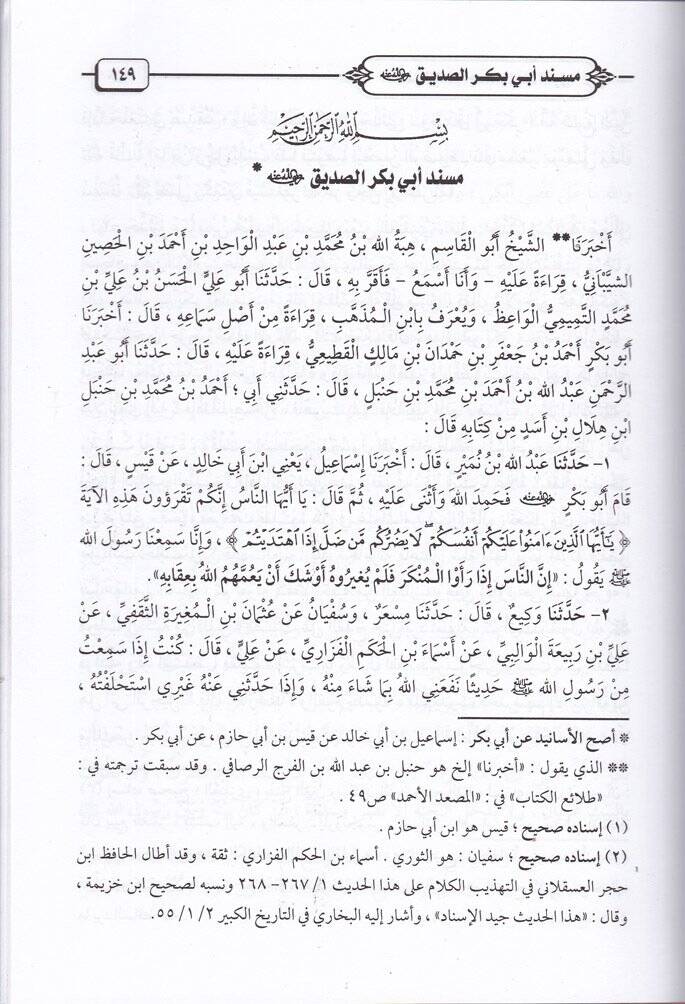 مسند أبي بكر الصديق رضي الله عنه
١٤٩
بِسْمِ اللهِ الرَّحْمَنِ الرَّحِيمِ
مسند أبي بكر الصديق رضي الله عنه *
أَخْبَرَنَا** الشَّيْخُ أَبُو القَاسِمِ ، هِبَةُ الله بْنُ مُحَمَّدِ بْنِ عَبْدِ الْوَاحِدِ بْنِ أَحْمَدَ بْنِ الْحَصِينِ
الشيَّبْاَنِيُّ ، قِرَاءَةً عَلَيْهِ – وَأَنَا أَسْمَعُ – فَأَقَرَّ بِهِ ، قَالَ : حَدَّثَنَا أَبُو عَلِيٍّ الْحَسَنُ بْنُ عَلِيِّ بْنِ
مُحَمَّدٍ التَّمِيمِيُّ الْوَاعِظُ ، وَيُعْرَفُ بِابْنِ الْـمُذْهَبِ ، قِرَاءَةً مِنْ أَصْلِ سَمَاعِهِ ، قَالَ : أَخْبَرَنَا
أَبُو بَكْرٍ أَحْمَدُ بْنُ جَعْفَرِ بْنِ حَمْدَانَ بْنِ مَالِكٍ الْقَطِيعِيُّ ، قِرَاءَةً عَلَيْهِ ، قَالَ : حَدَّثَنَا أَبُو عَبْدِ
الرَّحْمَنِ عَبْدُ الله بْنُ أَحْمَدَ بْنِ مُحَمَّدِ بْنِ حَنْبَلٍ ، قَالَ : حَدَّثَنِي أَبِي ؛ أَحْمَدُ بْنُ مُحَمَّدِ بْنِ حَنْبَلِ
ابْنِ هِلَالِ بْنِ أَسَدٍ مِنْ كِتَابِهِ قَالَ :
١– حَدَّثَنَا عَبْدُ الله بْنُ نُمَيْرٍ ، قَالَ : أَخْبَرَنَا إِسْمَاعِيلُ ، يَعْنِي ابْنَ أَبِي خَالِدٍ ، عَنْ قَيْسٍ ، قَالَ :
قَامَ أَبُو بَكْرٍ رضي الله عنه فَحَمِدَ اللهَ وَأَثْنَى عَلَيْهِ ، ثُمَّ قَالَ : يَا أَيُّهَا النَّاسُ إِنَّكُمْ تَقْرَؤونَ هَذِهِ الآيَةَ
﴿ يَٰٓأَيُّهَا ٱلَّذِينَ ءَامَنُوا۟ عَلَيْكُمْ أَنفُسَكُمْ ۖ لَا يَضُرُّكُم مَّن ضَلَّ إِذَا ٱهْتَدَيْتُمْ ﴾ ، وَإِنَّا سَمِعْنَا رَسُولَ الله
ﷺ يَقُولُ : «إِنَّ النَّاسَ إِذَا رَأَوْا الْمُنْكَرَ فَلَمْ يُغيرُوهُ أَوْشَكَ أَنْ يَعُمَّهُمُ اللهُ بِعِقَابِهِ».
٢– حَدَّثَنَا وَكِيعٌ ، قَالَ : حَدَّثَنَا مِسْعَرٌ ، وَسُفْيَانُ عَنْ عُثْمَانَ بْنِ الْـمُغِيرَةِ الثَّقَفِيِّ ، عَنْ
عَلِيِّ بْنِ رَبِيعَةَ الْوَالِبِيِّ ، عَنْ أَسْمَاءَ بْنِ الْحَكَمِ الْفَزَارِيِّ ، عَنْ عَلِيٍّ ، قَالَ : كُنْتُ إِذَا سَمِعْتُ
مِنْ رَسُولِ الله ﷺ حَدِيثًا نَفَعَنِي اللهُ بِمَا شَاءَ مِنْهُ ، وَإِذَا حَدَّثَنِي عَنْهُ غَيْرِي اسْتَحْلَفْتُهُ ،
* أصح الأسانيد عن أبي بكر : إسماعيل بن أبي خالد عن قيس بن أبي حازم ، عن أبي بكر .
** الذي يقول : «أخبرنا» إلخ هو حنبل بن عبد الله بن الفرج الرصافي . وقد سبقت ترجمته في :
«طلائع الكتاب» في : «المصعد الأحمد» ص٤٩ .
(١) إسناده صحيح ؛ قيس هو ابن أبي حازم .
(٢) إسناده صحيح ؛ سفيان : هو الثوري . أسماء بن الحكم الفزاري : ثقة ، وقد أطال الحافظ ابن
حجر العسقلاني في التهذيب الكلام على هذا الحديث ١/ ٢٦٧– ٢٦٨ ونسبه لصحيح ابن خزيمة ،
وقال : «هذا الحديث جيد الإسناد» ، وأشار إليه البخاري في التاريخ الكبير ٢/ ١/ ٥٥.